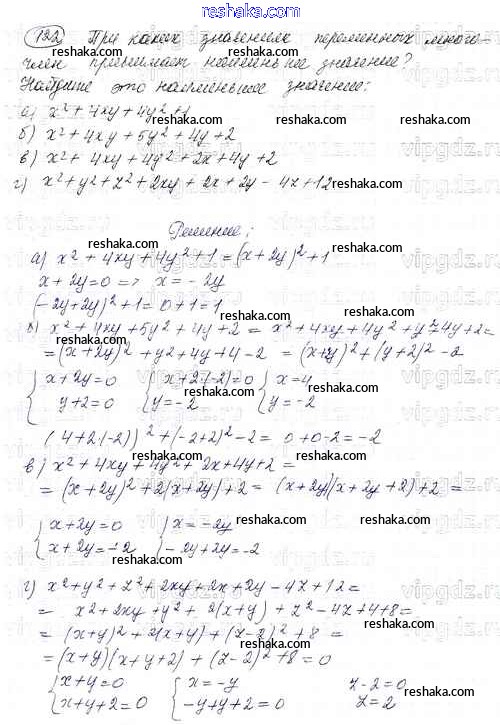 reshaka.com
122 При каких значениях переменных много-
член принимает наименьшее значение?
Найдите это наименьшее значение:
а) x² + 4xy + 4y² + 1
б) x² + 4xy + 5y² + 4y + 2
в) x² + 4xy + 4y² + 2x + 4y + 2
г) x² + y² + z² + 2xy + 2x + 2y - 4z + 12
Решение:
а) x² + 4xy + 4y² + 1 = (x + 2y)² + 1
x + 2y = 0 => x = -2y
(-2y + 2y)² + 1 = 0 + 1 = 1
б) x² + 4xy + 5y² + 4y + 2 = x² + 4xy + 4y² + y² + 4y + 2 =
= (x + 2y)² + y² + 4y + 4 - 2 = (x + 2y)² + (y + 2)² - 2
{ x + 2y = 0 { x + 2·(-2) = 0 { x = 4
{ y + 2 = 0 { y = -2 { y = -2
(4 + 2·(-2))² + (-2 + 2)² - 2 = 0 + 0 - 2 = -2
в) x² + 4xy + 4y² + 2x + 4y + 2 =
= (x + 2y)² + 2(x + 2y) + 2 = (x + 2y)(x + 2y + 2) + 2 =
{ x + 2y = 0 { x = -2y
{ x + 2y = -2 { -2y + 2y = -2
г) x² + y² + z² + 2xy + 2x + 2y - 4z + 12 =
= x² + 2xy + y² + 2(x + y) + z² - 4z + 4 + 8 =
= (x + y)² + 2(x + y) + (z - 2)² + 8 =
= (x + y)(x + y + 2) + (z - 2)² + 8 = 0
{ x + y = 0 { x = -y z - 2 = 0
{ x + y + 2 = 0 { -y + y + 2 = 0 z = 2